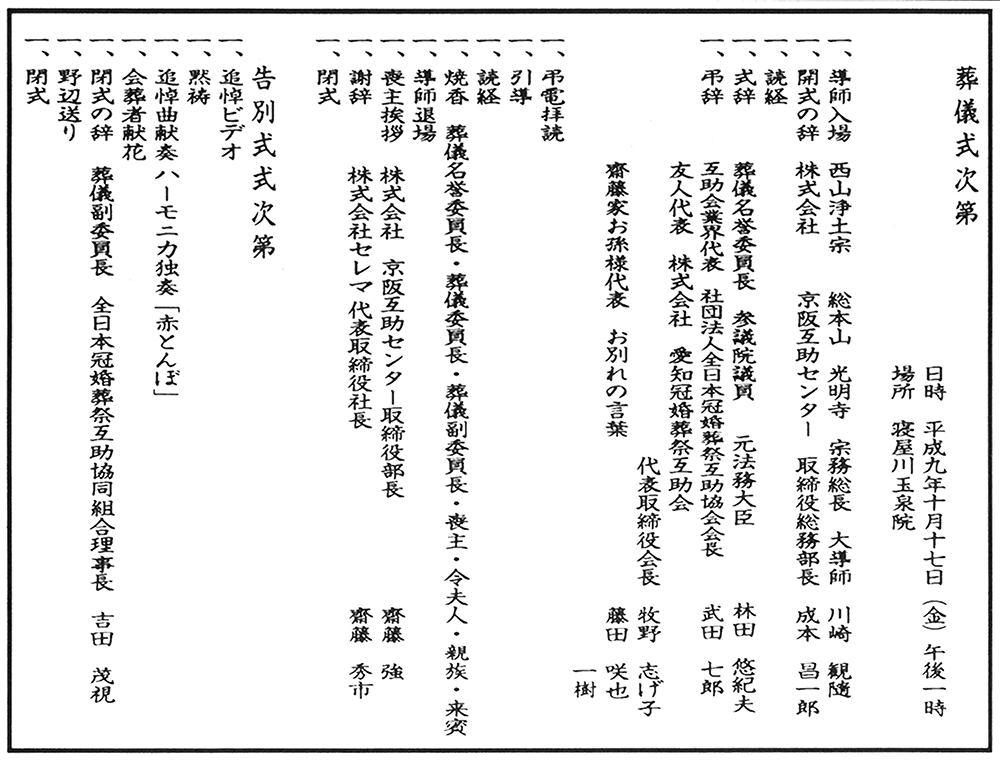 葬儀式次第
日時　平成九年十月十七日（金）午後一時
場所　寝屋川玉泉院
一、導師入場　西山浄土宗　総本山　光明寺　宗務総長　大導師　川崎　観随
一、開式の辞　株式会社　京阪互助センター　取締役総務部長　成本　昌一郎
一、読経
一、式辞　葬儀名誉委員長　参議院議員　元法務大臣　林田　悠紀夫
一、弔辞　互助会業界代表　社団法人全日本冠婚葬祭互助協会会長　武田　七郎
友人代表　株式会社　愛知冠婚葬祭互助会
代表取締役会長　牧野　志げ子
齋藤家お孫様代表　お別れの言葉　藤田　咲也
一樹
一、弔電拝読
一、引導
一、読経
一、焼香　葬儀名誉委員長・葬儀委員長・葬儀副委員長・喪主・令夫人・親族・来賓
一、導師退場
一、喪主挨拶　株式会社　京阪互助センター取締役部長　齋藤　強
一、謝辞　株式会社セレマ　代表取締役社長　齋藤　秀市
一、閉式
告別式式次第
一、追悼ビデオ
一、黙祷
一、追悼曲献奏　ハーモニカ独奏「赤とんぼ」
一、会葬者献花
一、閉式の辞　葬儀副委員長　全日本冠婚葬祭互助協同組合理事長　吉田　茂視
一、野辺送り
一、閉式